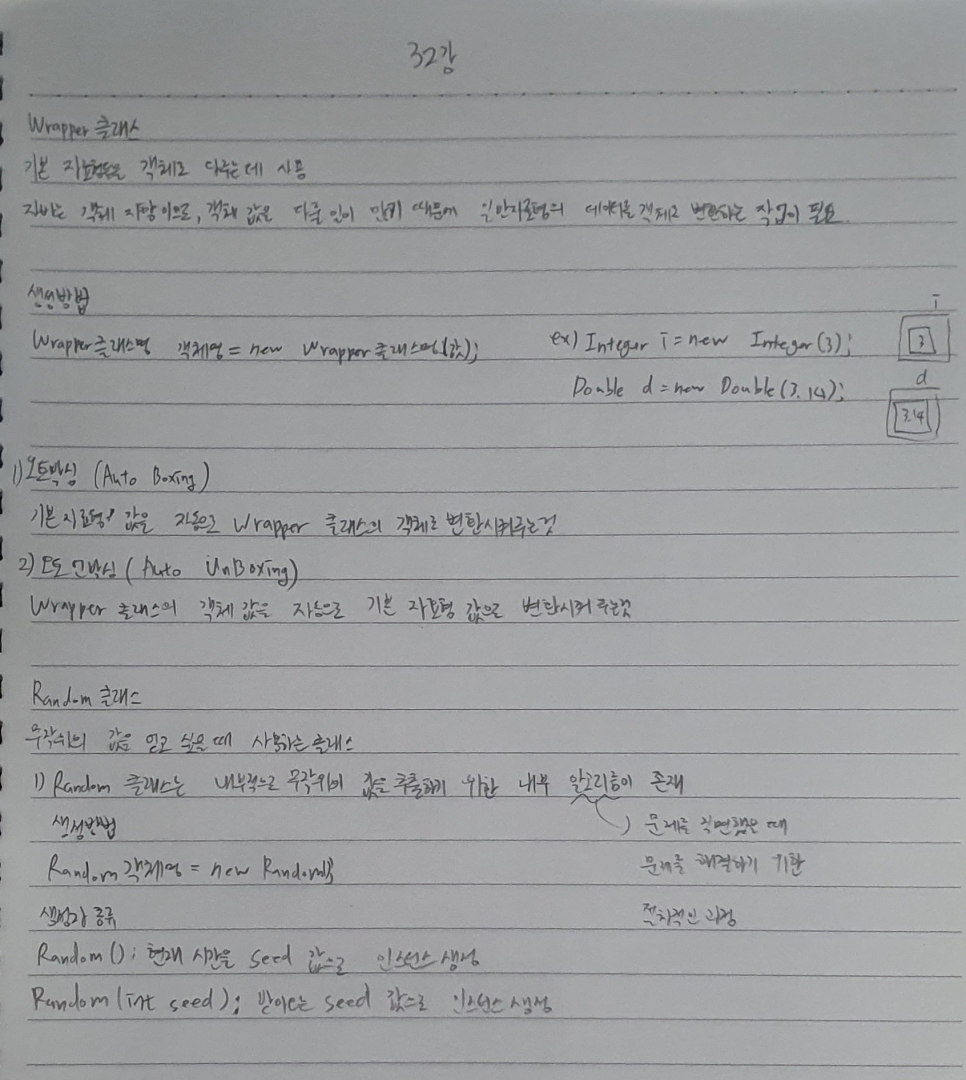 32강
Wrapper 클래스
기본 자료형을 객체로 다루는데 사용
자바는 객체 지향이므로, 객체 값을 다룰 일이 많기 때문에 일반자료형의 데이터를 객체로 변환하는 작업이 필요
생성방법
Wrapper클래스명 객체명 = new Wrapper클래스명(값); ex) Integer i = new Integer(3);
i
3
Double d = new Double(3.14);
d
3.14
1) 오토박싱 (Auto Boxing)
기본자료형 값을 자동으로 Wrapper 클래스의 객체로 변환시켜주는것
2) 오토 언박싱 (Auto UnBoxing)
Wrapper 클래스의 객체 값을 자동으로 기본 자료형 값으로 변환시켜 주는것
Random 클래스
무작위의 값을 얻고 싶을 때 사용하는 클래스
1) Random 클래스는 내부적으로 무작위의 값을 추출하기 위한 내부 알고리즘이 존재
생성방법 문제를 직면했을 때
Random 객체명 = new Random(); 문제를 해결하기 위한
생성자 종류 절차적인 과정
Random(); 현재 시간을 seed 값으로 인스턴스 생성
Random(int seed); 받아온 seed 값으로 인스턴스 생성